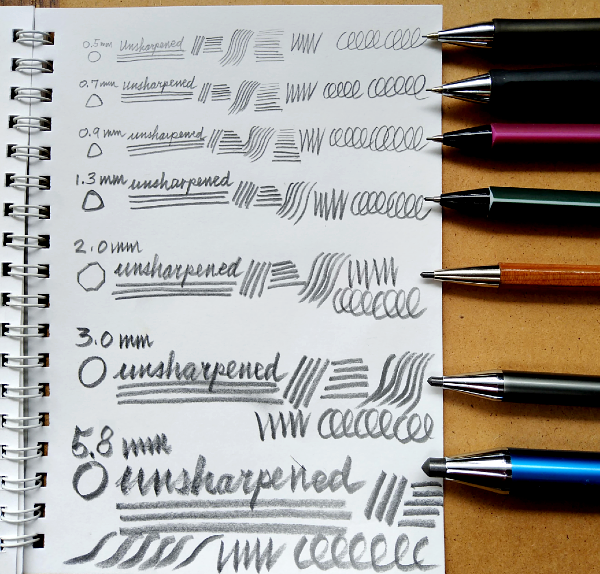 0.5mm Unsharpened
0.7mm Unsharpened
0.9mm unsharpened
1.3mm unsharpened
2.0mm
unsharpened
3.0mm
unsharpened
5.8 mm
unsharpened